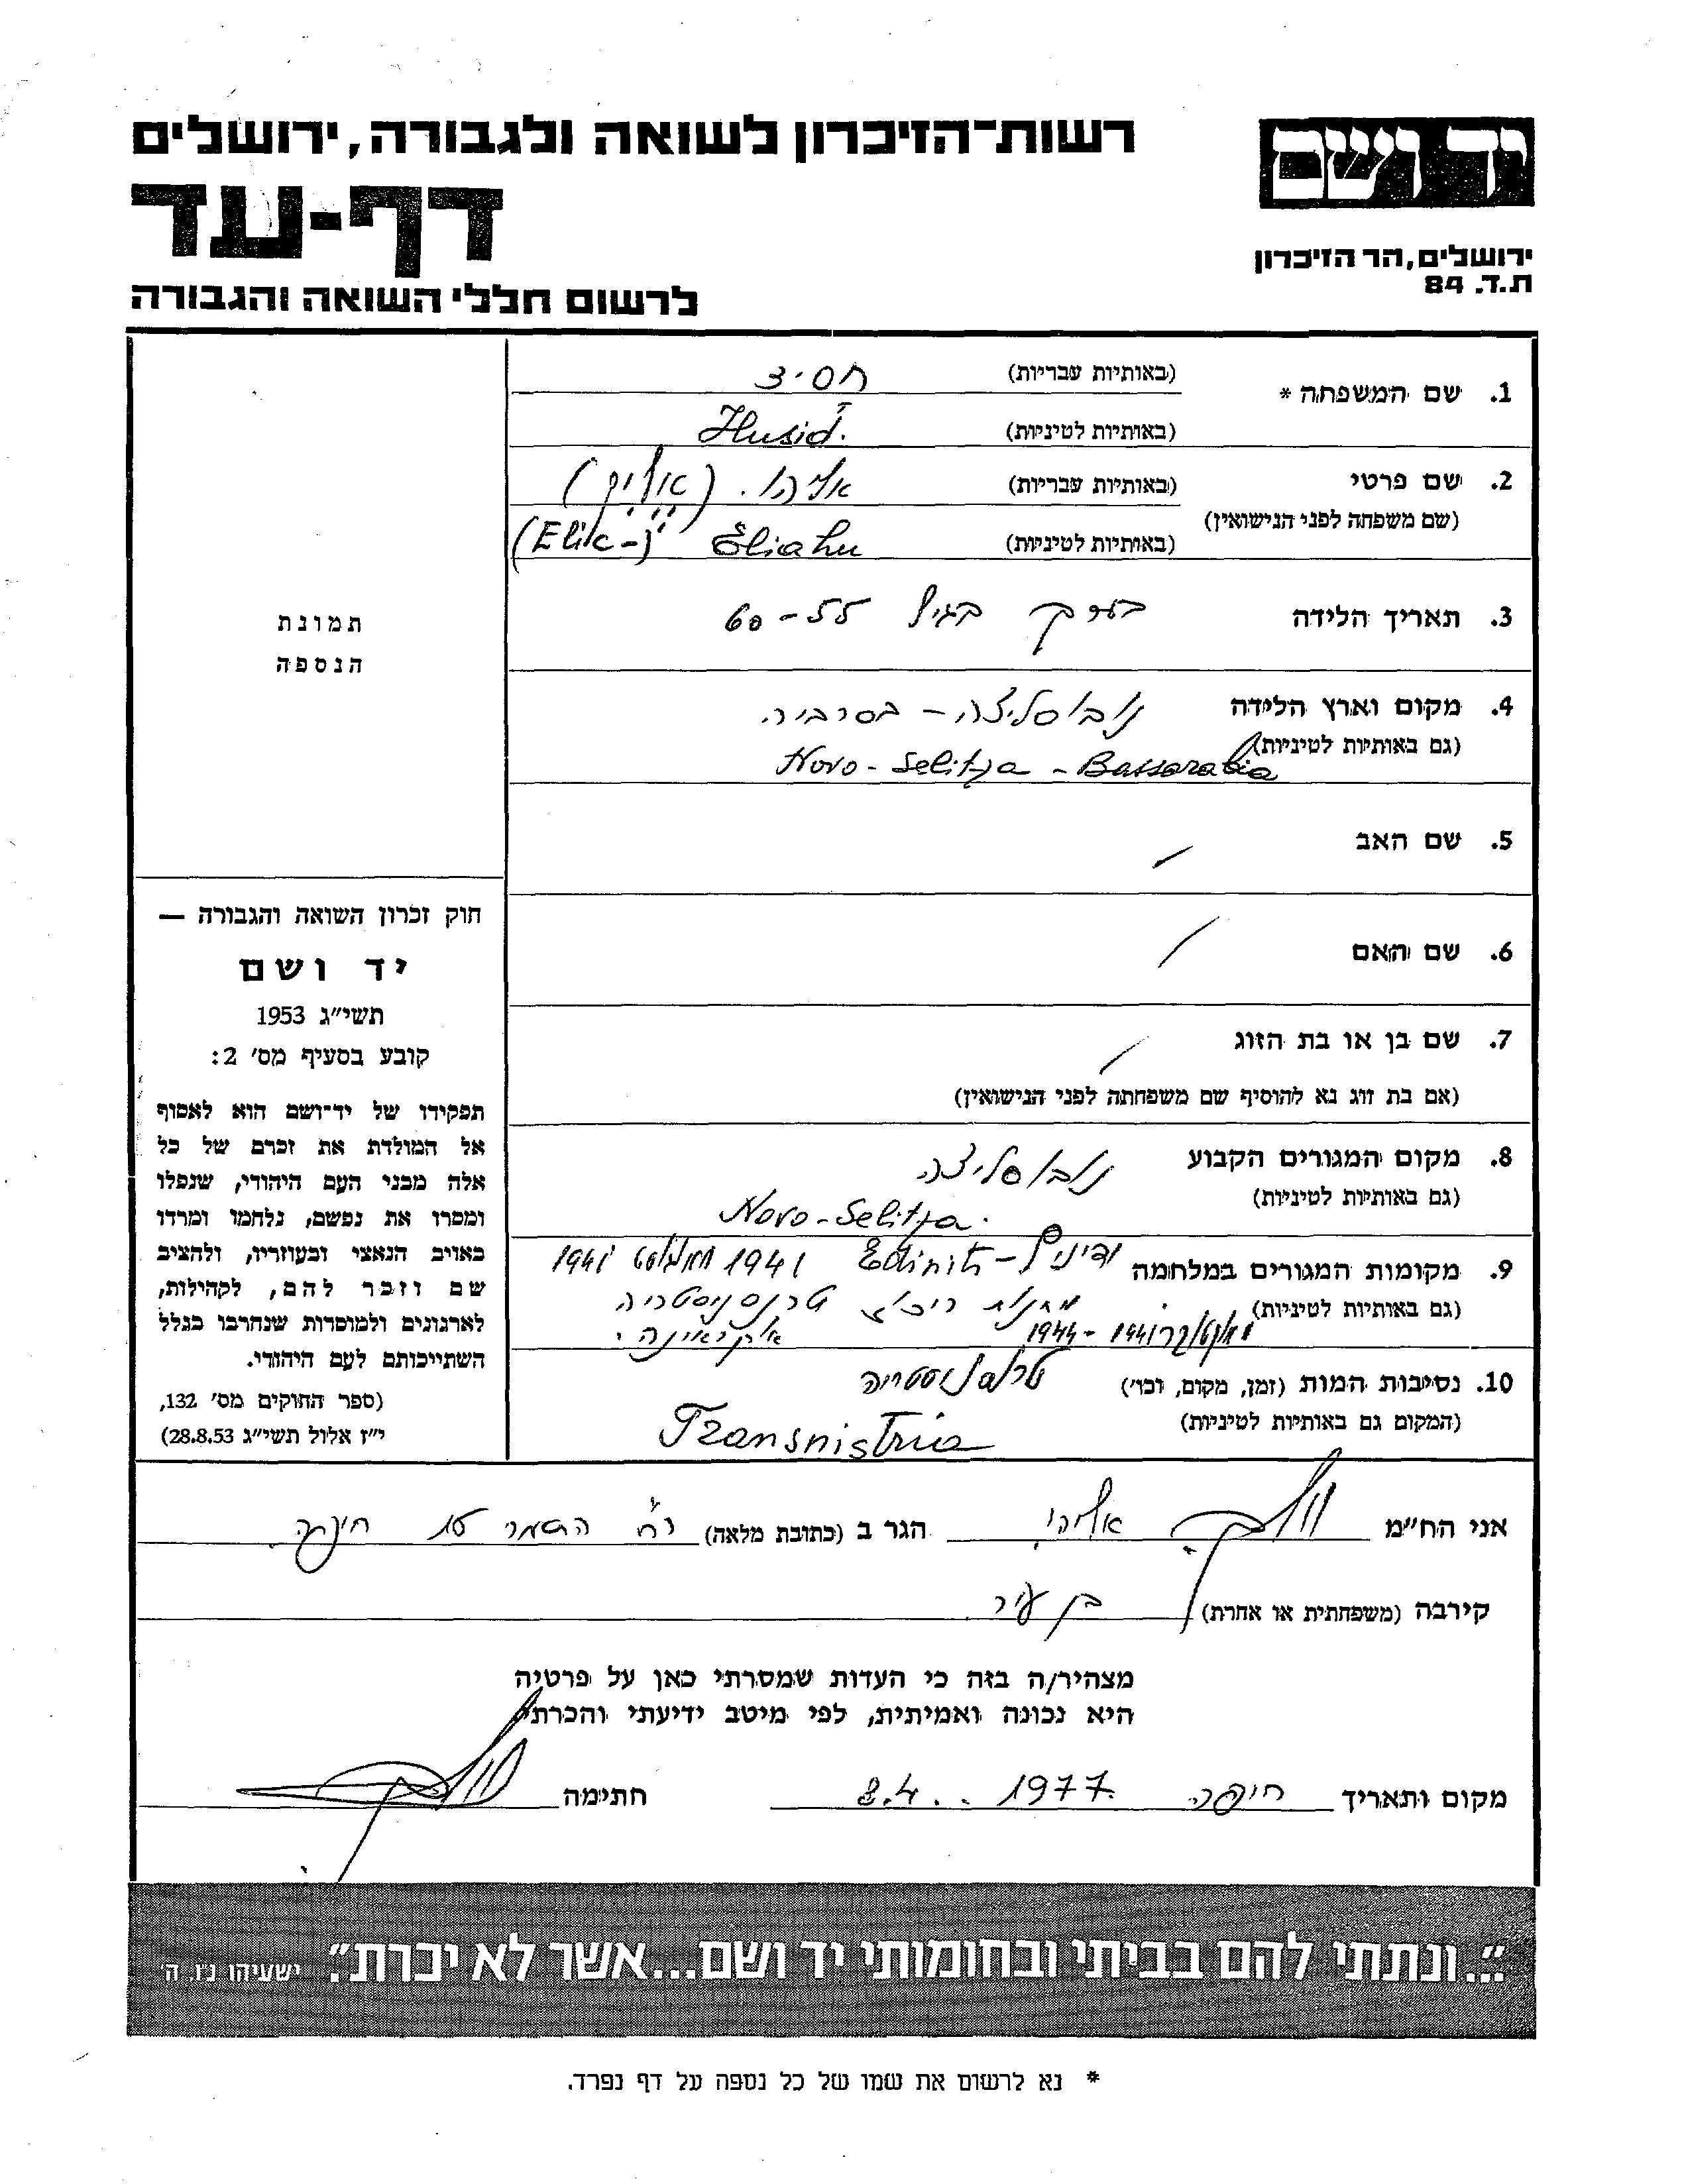 רשות־הזיכרון לשואה ולגבורה, ירושלים
יד ושם
דף-עד
ירושלים, הר הזיכרון
ת.ד. 84
לרשום חללי השואה והגבורה
1. שם המשפחה * (באותיות עבריות) חסיד
(באותיות לטיניות) Husid.
2. שם פרטי (באותיות עבריות) אליהו. (אליק)
(שם משפחה לפני הנישואין)
(באותיות לטיניות) Eliahu (Elik)
3. תאריך הלידה בערך בגיל 55-60
4. מקום וארץ הלידה נובוסליצה - בסרביה.
(גם באותיות לטיניות)
Novo-Selitza - Bassarabia
5. שם האב
6. שם האם
7. שם בן או בת הזוג
(אם בת זוג נא להוסיף שם משפחתה לפני הנישואין)
8. מקום המגורים הקבוע נובוסליצה
(גם באותיות לטיניות)
Novo-Selitza.
9. מקומות המגורים במלחמה Edinitz - 1941 1941
(גם באותיות לטיניות) מחנות ריכוז טרנסניסטריה
1941-1944 אוקראינה.
10. נסיבות המות (זמן, מקום, וכו') טרנסניסטריה
(המקום גם באותיות לטיניות)
Transnistria
תמונת
הנספה
חוק זכרון השואה והגבורה —
יד ושם
תשי״ג 1953
קובע בסעיף מס׳ 2:
תפקידו של יד־ושם הוא לאסוף
אל המולדת את זכרם של כל
אלה מבני העם היהודי, שנפלו
ומסרו את נפשם, נלחמו ומרדו
באויב הנאצי ובעוזריו, ולהציב
שם וזכר להם, לקהילות,
לארגונים ולמוסדות שנחרבו בגלל
השתייכותם לעם היהודי.
(ספר החוקים מס׳ 132,
י״ז אלול תשי״ג 28.8.53)
אני הח״מ אליהו הגר ב (כתובת מלאה) רח׳ חיפה
קירבה (משפחתית או אחרת) בן עיר
מצהיר/ה בזה כי העדות שמסרתי כאן על פרטיה
היא נכונה ואמיתית, לפי מיטב ידיעתי והכרתי
מקום ותאריך חיפה 8.4.1977 חתימה
״...ונתתי להם בביתי ובחומותי יד ושם...אשר לא יכרת״. ישעיהו נ״ו, ה׳
* נא לרשום את שמו של כל נספה על דף נפרד.